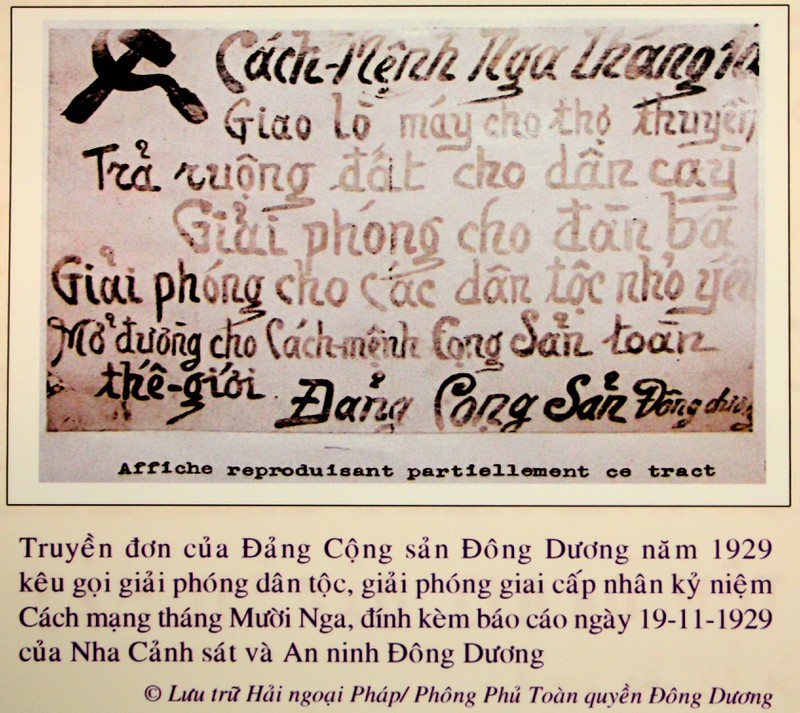 Cách-Mệnh Nga tháng
Giao lò máy cho thợ thuyền
Trả ruộng đất cho dân cầy
Giải phóng cho đàn bà
Giải phóng cho các dân tộc nhỏ yếu
Mở đường cho Cách-mệnh Cộng Sản toàn
thế-giới
Đảng Cộng Sản Đông dương
Affiche reproduisant partiellement ce tract
Truyền đơn của Đảng Cộng sản Đông Dương năm 1929
kêu gọi giải phóng dân tộc, giải phóng giai cấp nhân kỷ niệm
Cách mạng tháng Mười Nga, đính kèm báo cáo ngày 19-11-1929
của Nha Cảnh sát và An ninh Đông Dương
© Lưu trữ Hải ngoại Pháp/ Phông Phủ Toàn quyền Đông Dương